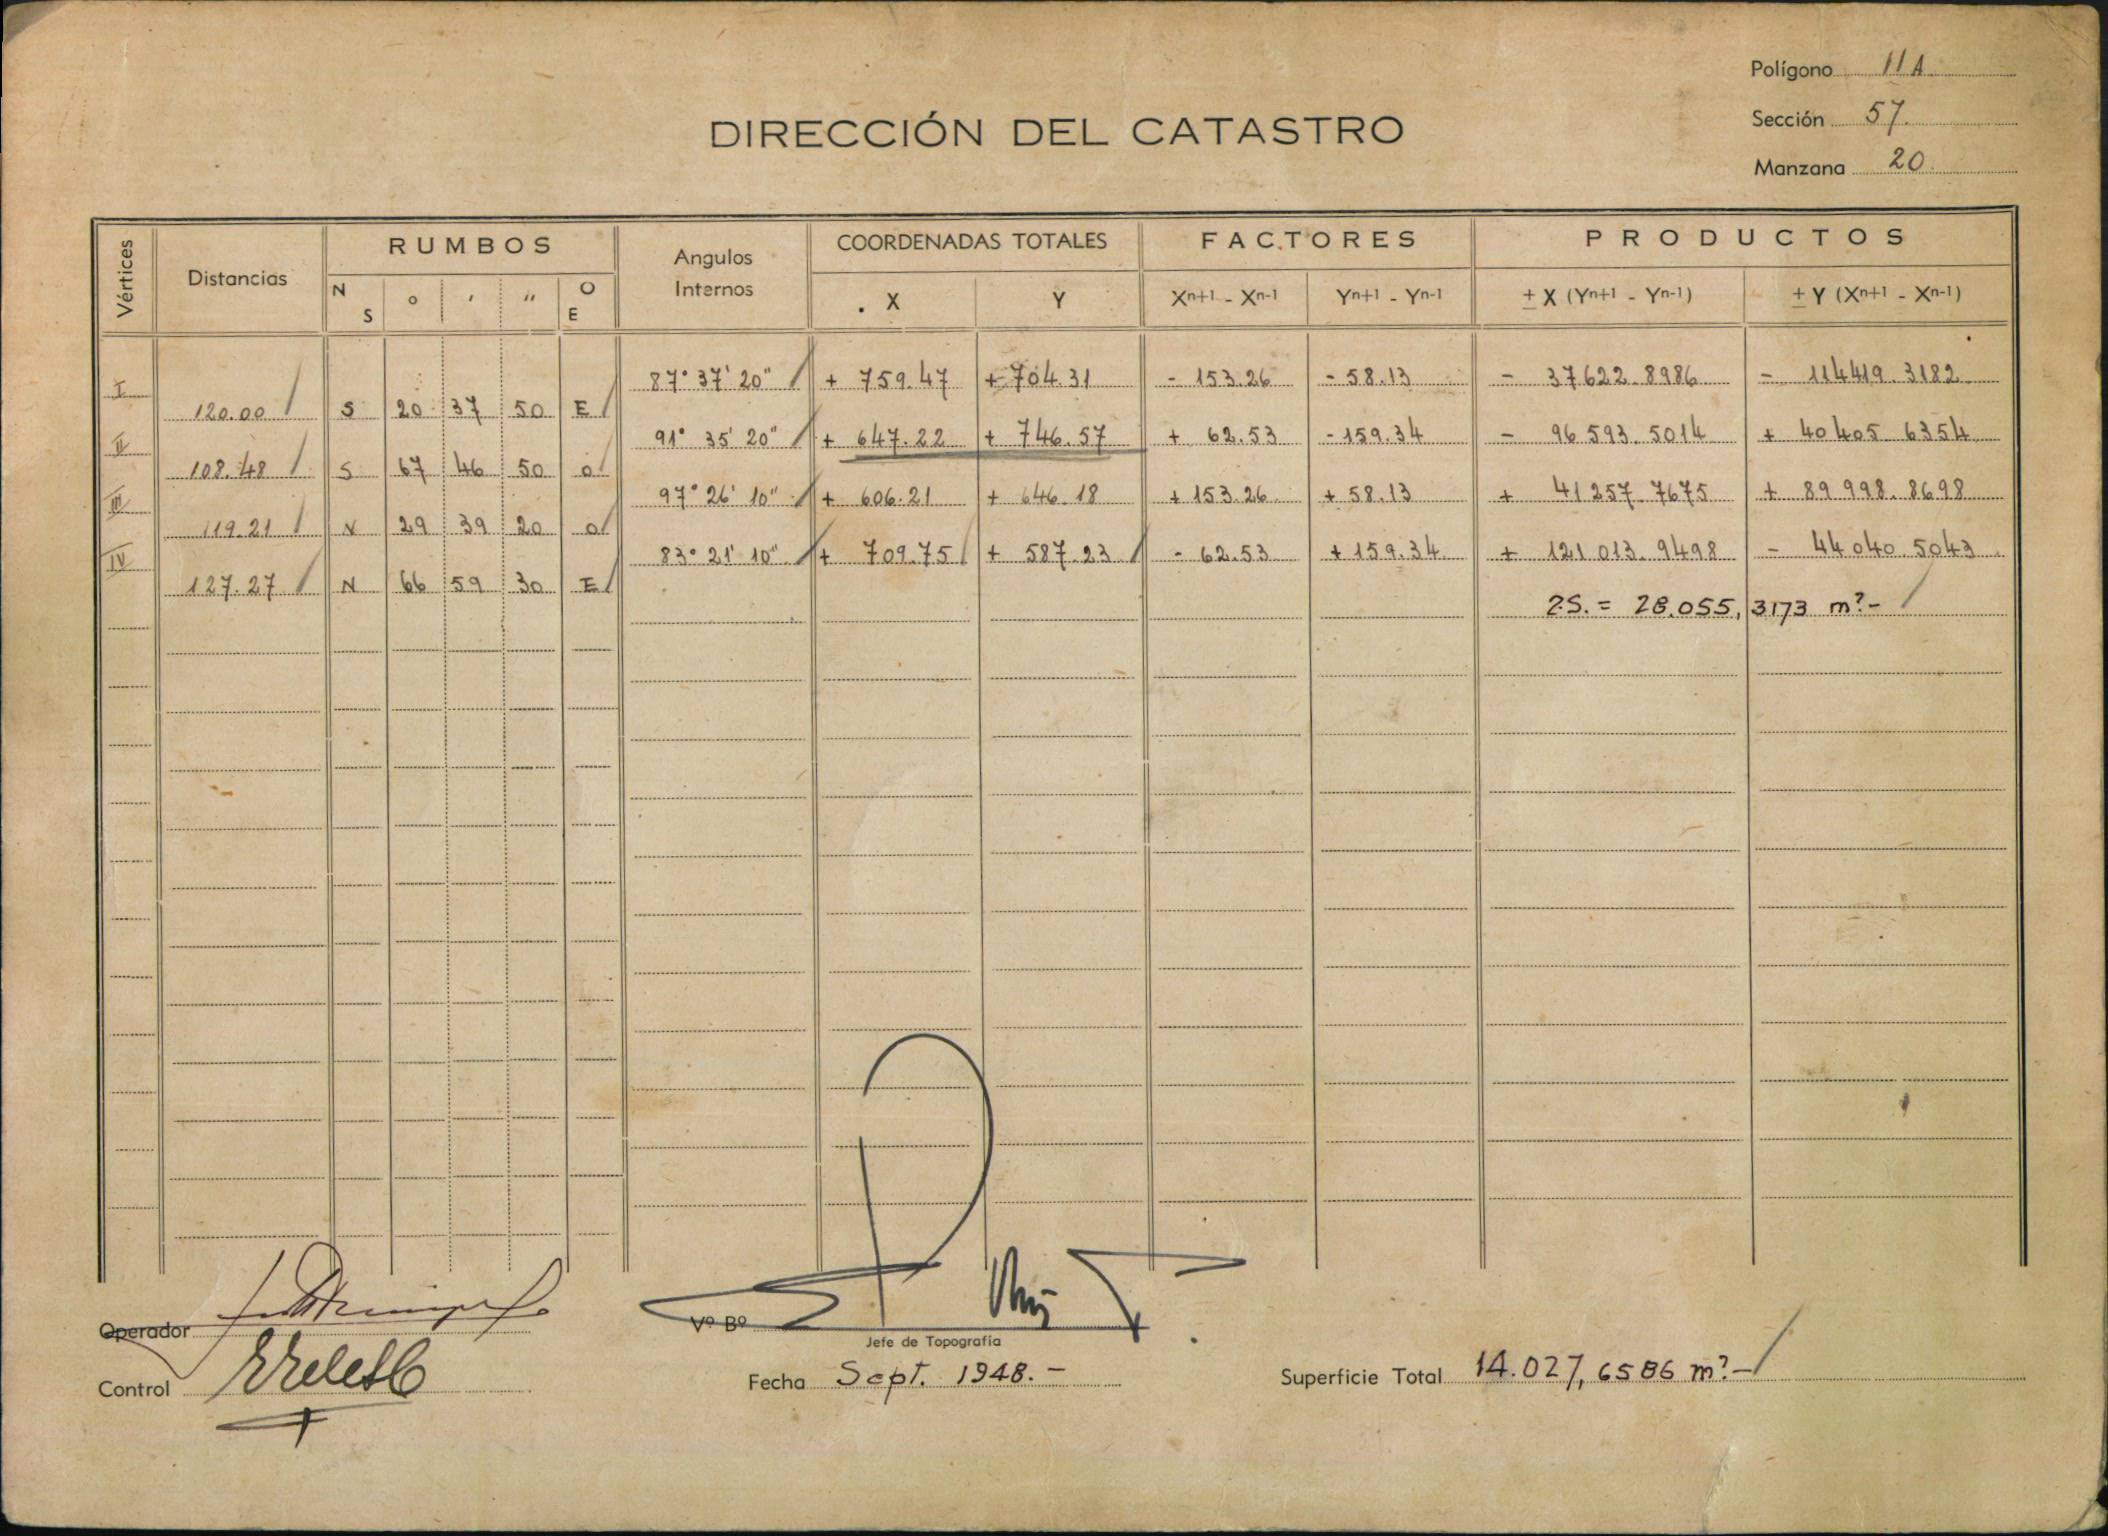 Polígono 11A.
Sección 57.
Manzana 20
DIRECCIÓN DEL CATASTRO
Vértices Distancias RUMBOS Angulos Internos COORDENADAS TOTALES FACTORES PRODUCTOS
N S ° ' '' O E X Y Xn+1 - Xn-1 Yn+1 - Yn-1 ± X (Yn+1 - Yn-1) ± Y (Xn+1 - Xn-1)
I 87° 37' 20" + 759.47 + 704.31 - 153.26 - 58.13 - 37622.8986 - 114419.3182
120.00 S 20 37 50 E
II 91° 35' 20" + 647.22 + 746.57 + 62.53 - 159.34 - 96593.5014 + 40405.6354
108.48 S 67 46 50 O
III 97° 26' 10" + 606.21 + 646.18 + 153.26 + 58.13 + 41257.7675 + 89998.8698
119.21 N 29 39 20 O
IV 83° 21' 10" + 709.75 + 587.23 - 62.53 + 159.34 + 121013.9498 - 44040.5043
127.27 N 66 59 30 E
2S. = 28.055,3173 m².-
Operador
Vº Bº
Jefe de Topografía
Control
Fecha Sept. 1948.-
Superficie Total 14.027,6586 m².-